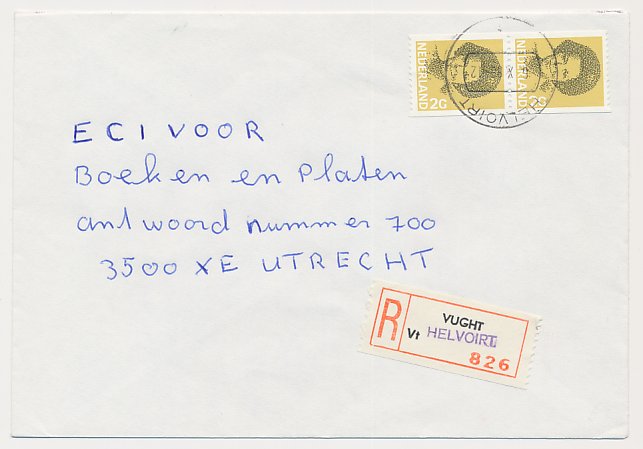 NEDERLAND 2G
NEDERLAND 2G
HELVOIRT
ECI VOOR
Boeken en Platen
antwoord nummer 700
3500 XE UTRECHT
R
VUGHT
Vt HELVOIRT
826